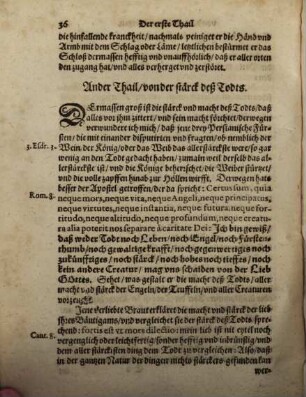 36 Der erste Thail
die hinfallende kranckheit / nachmals peiniget er die Händ vnd
Armb mit dem Schlag oder Läme / letztlichen bestürmet er das
Schloß dermassen hefftig vnd vnauffhörlich / daß er aller orten
den zugang hat / vnd alles verherget vnd zerstört.
Ander Thail / von der stärck deß Todts.
DErmassen groß ist die stärck vnd macht deß Todts / daß
alles vor ihm zittert / vnd sein macht förchtet / derwegen
verwundert mich / daß jene drey Persianische Für-
sten / die mit einander disputirten vnd fragten / ob nemblich der
3. Esdr. 3. Wein / der König / oder das Weib das allersterckiste were / so gar
wenig an den Todt gedacht haben / zumaln weil derselb das al-
lersterckiste ist / vnd die Könige beherschet / die Weiber stürtzet /
vnd die volle zapffen hinab zur Höllen wirfft. Derwegen hats
besser der Apostel getroffen / der da spricht: Certus sum, quia
Rom. 8. neque mors, neque vita, neque Angeli, neque principatus,
neque virtutes, neque instantia, neque futura, neque for-
titudo, neque altitudo, neque profundum, neque creatu-
ra alia poterit nos separare à caritate Dei: Ich bin gewiß /
daß weder Todt noch Leben / noch Engel / noch Fürsten-
thumb / noch gewaltige krafft / noch gegenwertiges noch
zukünfftiges / noch stärck / noch hohes noch tieffes / noch
kein andere Creatur / mag vns schaiden von der Lieb
GOttes. Sehet / was gestalt er die macht deß Todts / aller
macht vnd stärck der Engeln / der Teuffeln / vnd aller Creaturen
vorzeucht.
Jene verliebte Braut erklärt die macht vnd stärck der lieb
ihres Bäutigams / vnd vergleichet sie der stärck deß Todts spre-
Cant. 8. chend: fortis est vt mors dilectio: mein lieb ist nit eytel noch
vergenglich oder leichtfertig / sonder hefftig vnd inbrünstig / vnd
dem aller stärckisten ding dem Todt zu vergleichen: Also / daß
in der gantzen Natur der dingen nichts stärckers gefunden kan
wer-